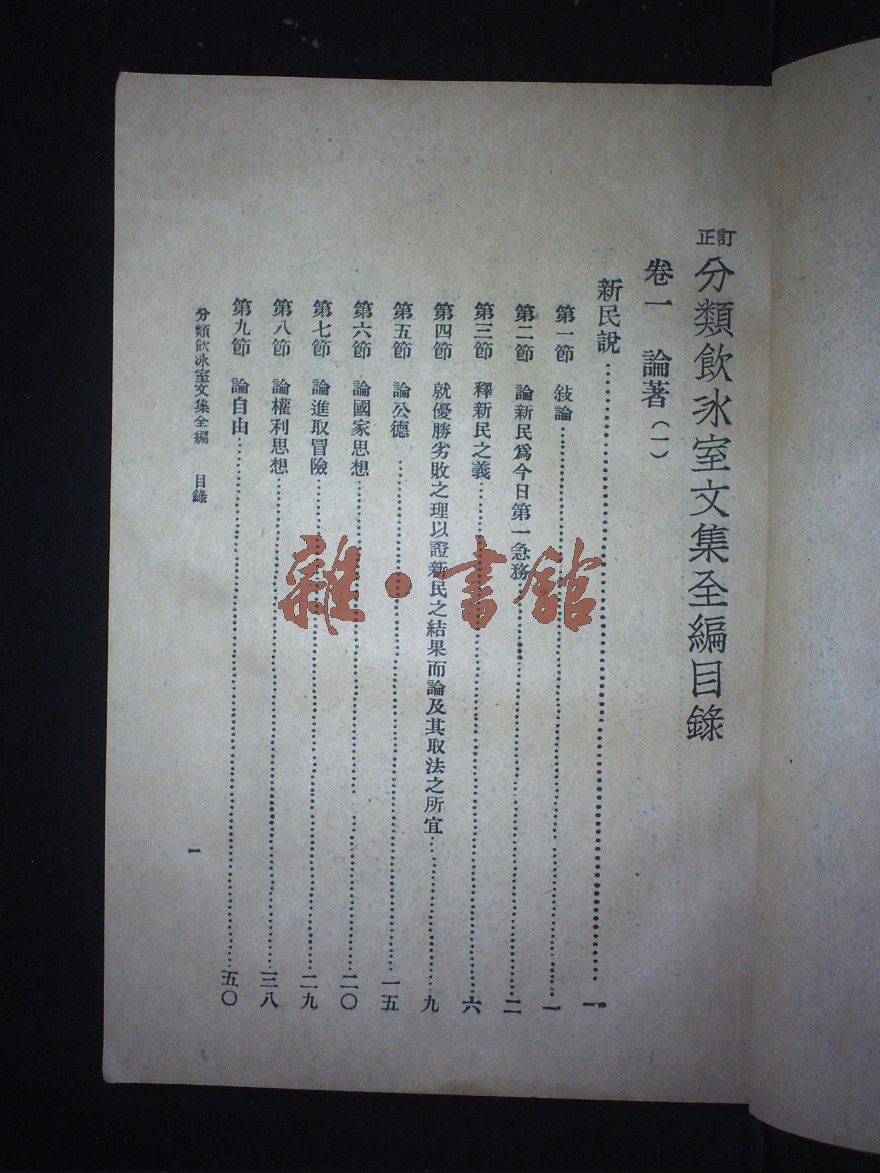 訂正
分類飲冰室文集全編目錄
卷一 論著(一)
新民說……一
第一節 敍論……一
第二節 論新民爲今日第一急務……二
第三節 釋新民之義……六
第四節 就優勝劣敗之理以證新民之結果而論及其取法之所宜……九
第五節 論公德……一五
第六節 論國家思想……二〇
第七節 論進取冒險……二九
第八節 論權利思想……三八
第九節 論自由……五〇
分類飲冰室文集全編 目錄
一
雜·書館